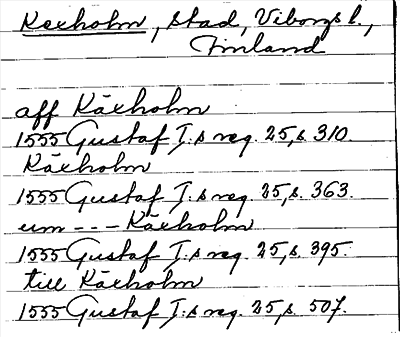 Kexholm, stad, Viborgs l.,
Finland
aff Käxholm
1555 Gustaf I:s reg. 25, s. 310.
Käxholm
1555 Gustaf I:s reg. 25, s. 363.
um --- Käxholm
1555 Gustaf I:s reg. 25, s. 395.
till Käxholm
1555 Gustaf I:s reg. 25, s. 507.